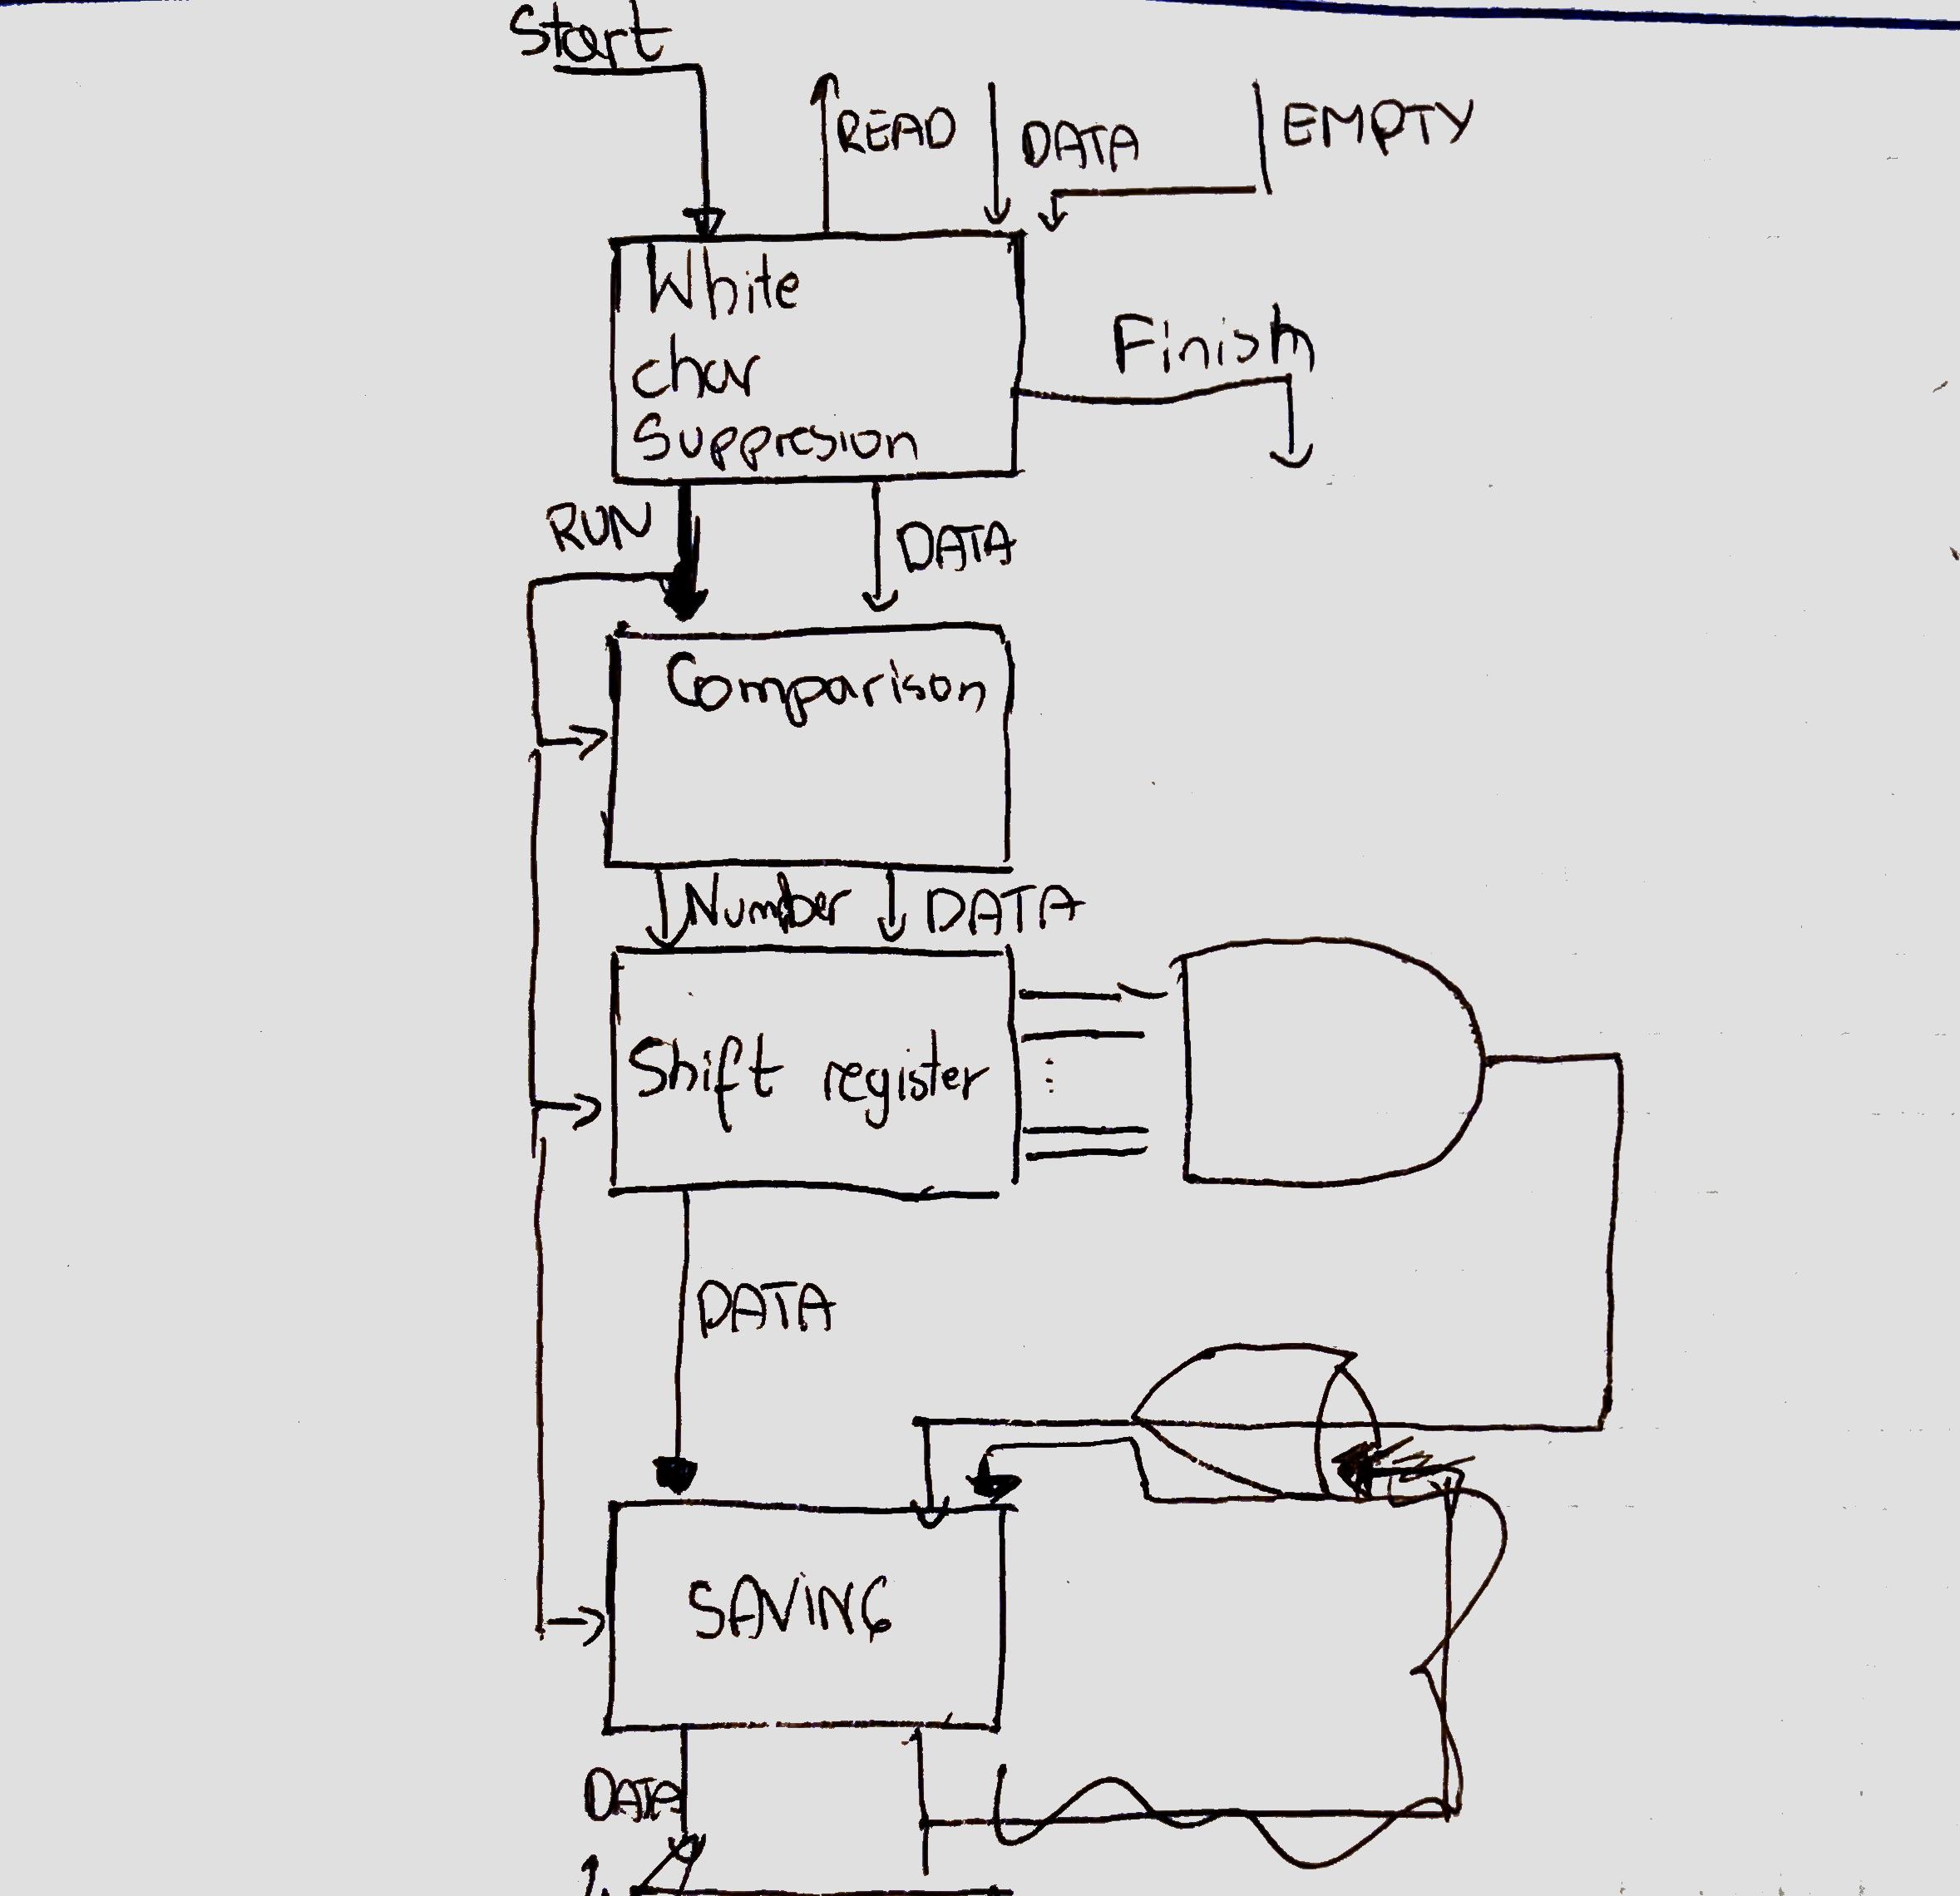 Start
READ
DATA
EMPTY
White
char
Suppresion
Finish
RUN
DATA
Comparison
Number
DATA
Shift register
DATA
SAVING
DATA